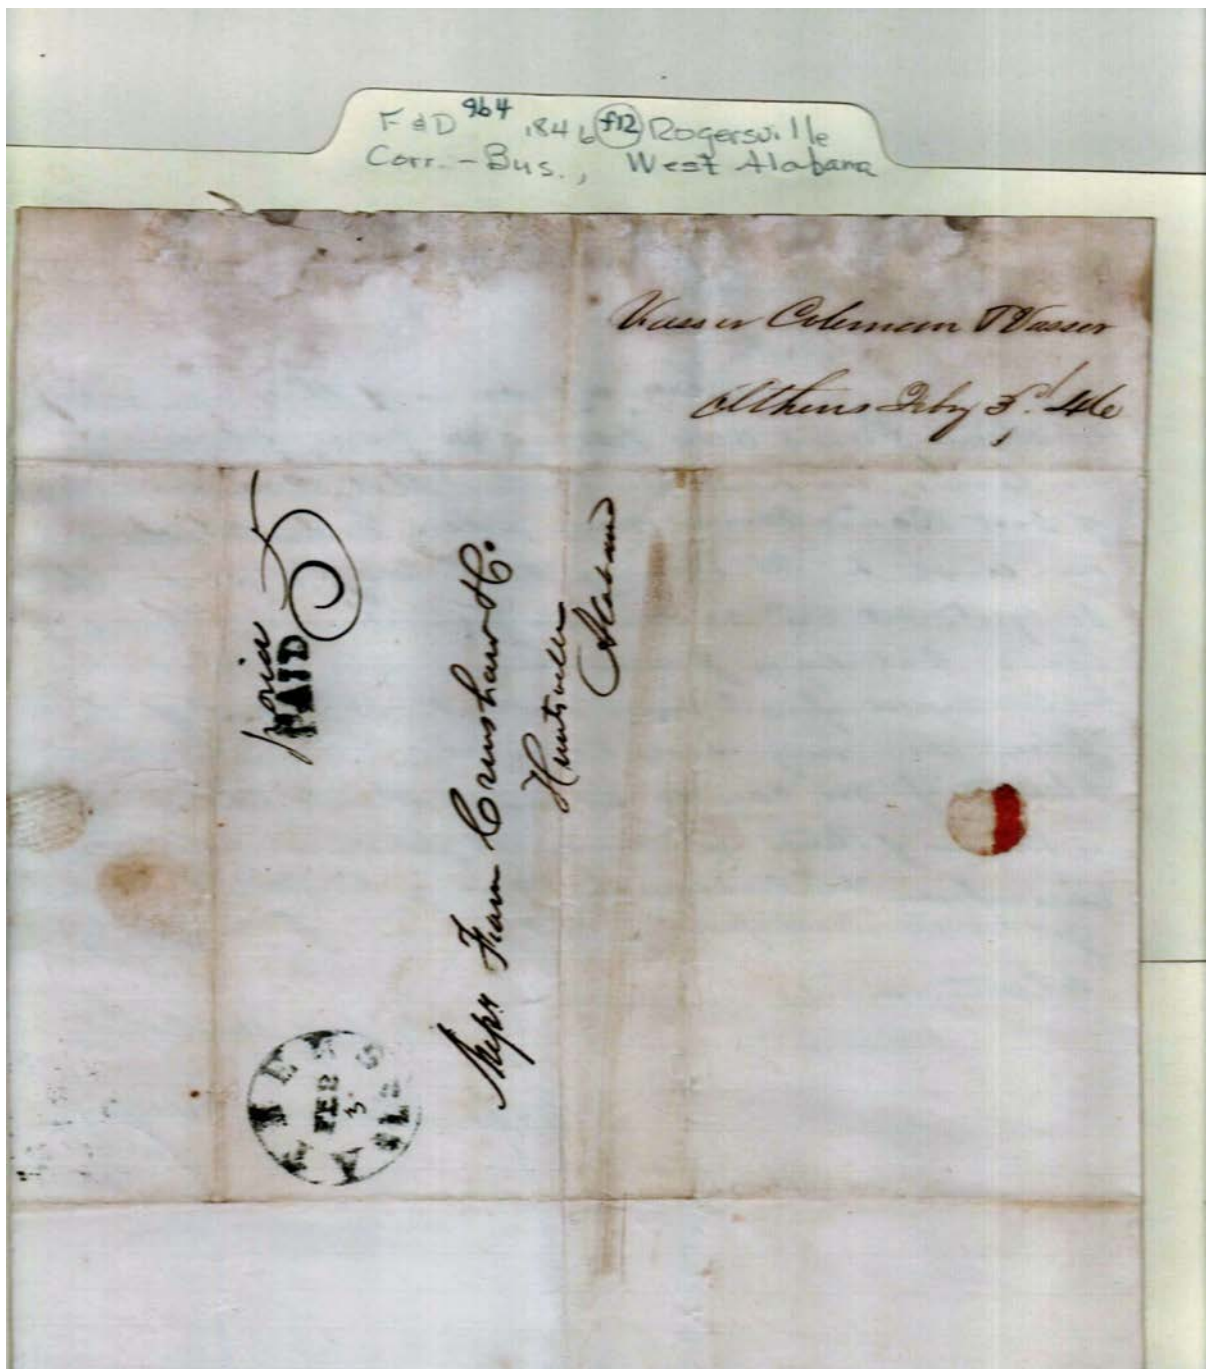 F & D 9b4 1846 f12 Rogersville
Corr. - Bus., West Alabama
Vasser Coleman & Vasser
Athens Feby 3d. 46
paid 5
PAID
Messrs Fearn Crenshaw & Co.
Huntsville
Alabama
ATHENS
FEB
3
ALA